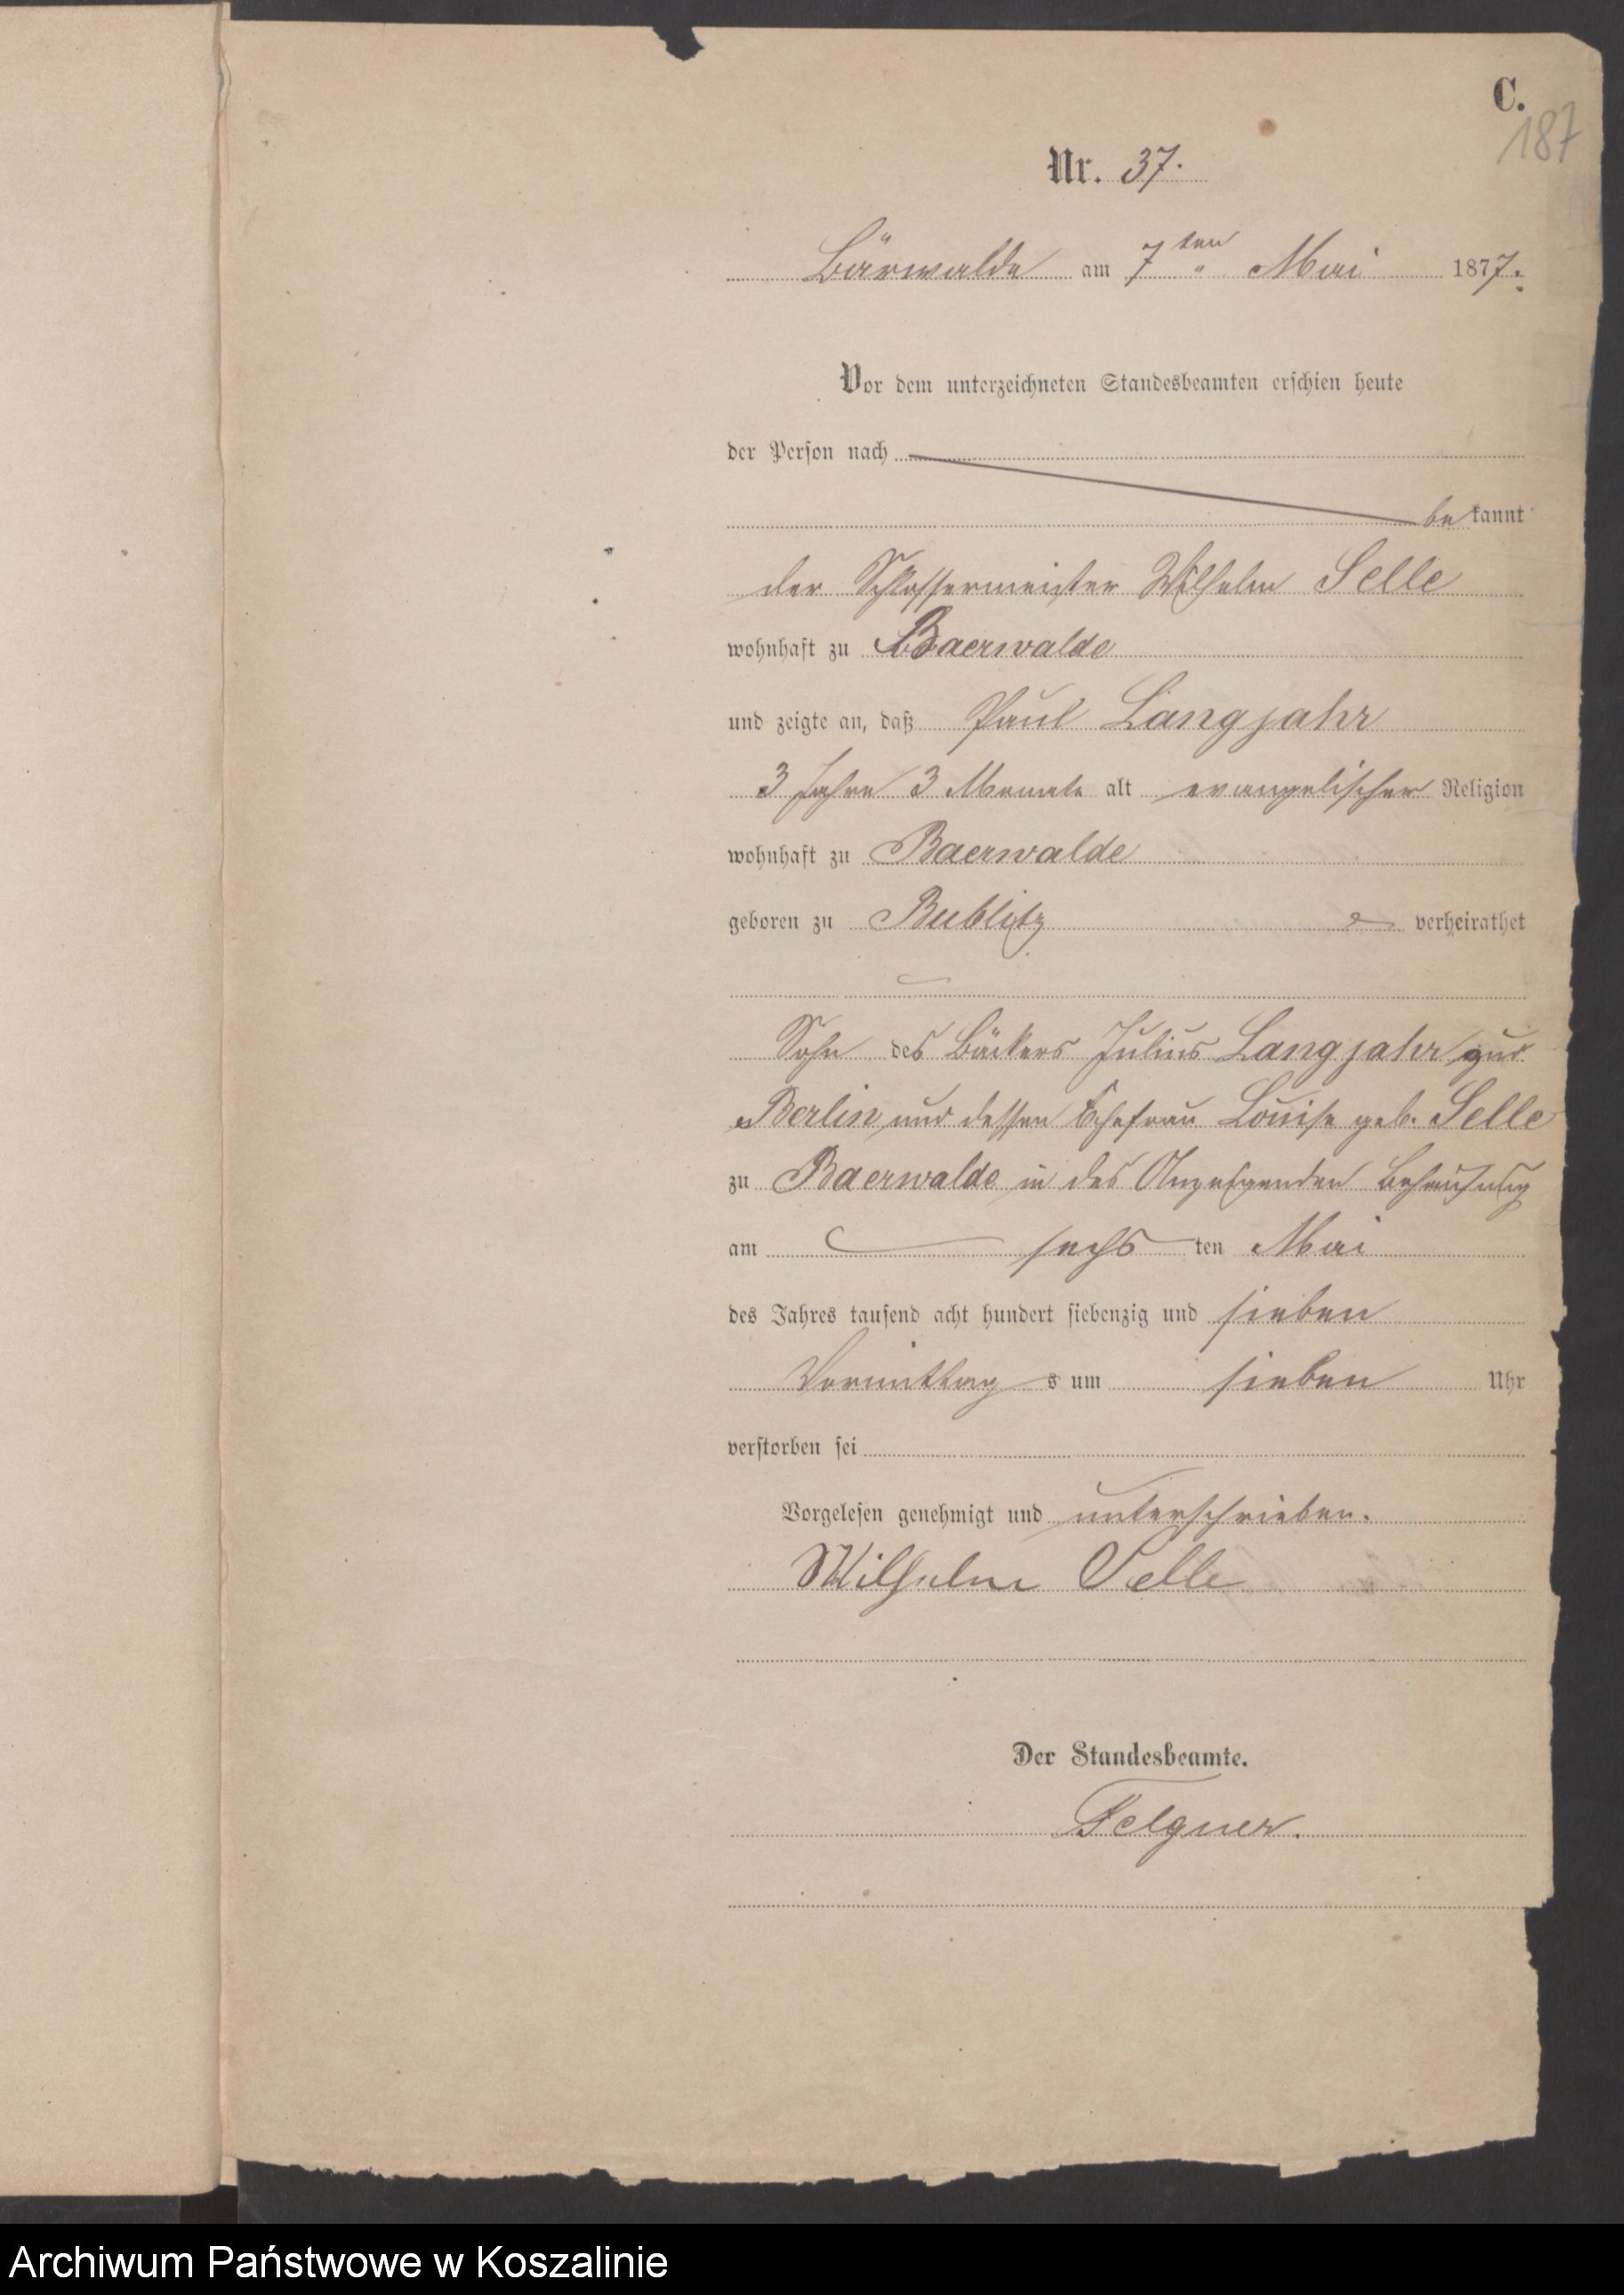 C.
187
Nr. 37.
Bärwalde am 7ten Mai 1877.
Vor dem unterzeichneten Standesbeamten erschien heute
der Person nach
bekannt
der Schlossermeister Wilhelm Selle
wohnhaft zu Baerwalde
und zeigte an, daß Paul Langjahr
3 Jahre 3 Monate alt evangelischer Religion
wohnhaft zu Baerwalde
geboren zu Bublitz verheirathet
Sohn des Bäckers Julius Langjahr zu
Berlin und dessen Ehefrau Louise geb. Selle
zu Baerwalde in des Anzeigenden Behausung
am sechs ten Mai
des Jahres tausend acht hundert siebenzig und sieben
Vormittag s um sieben Uhr
verstorben sei
Vorgelesen genehmigt und unterschrieben.
Wilhelm Selle
Der Standesbeamte.
Felgner.
Archiwum Państwowe w Koszalinie